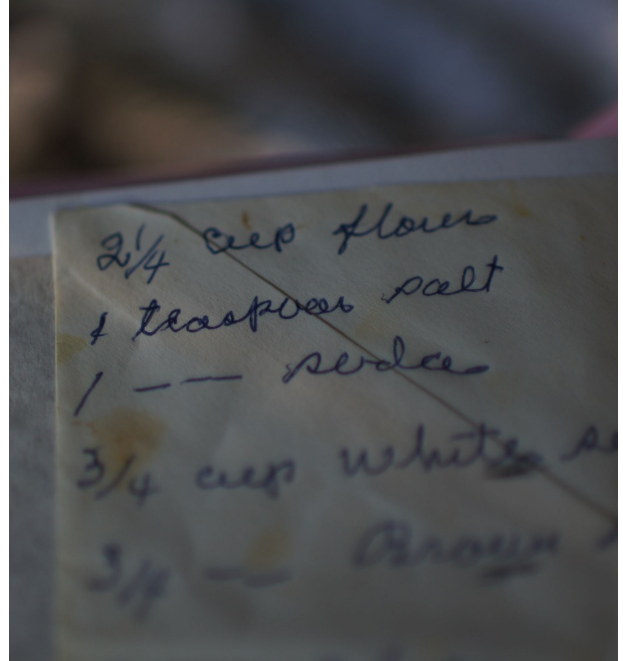 2 1/4 cup flour
1 teaspoon salt
1 — — soda
3/4 cup white
3/4 — — Brown